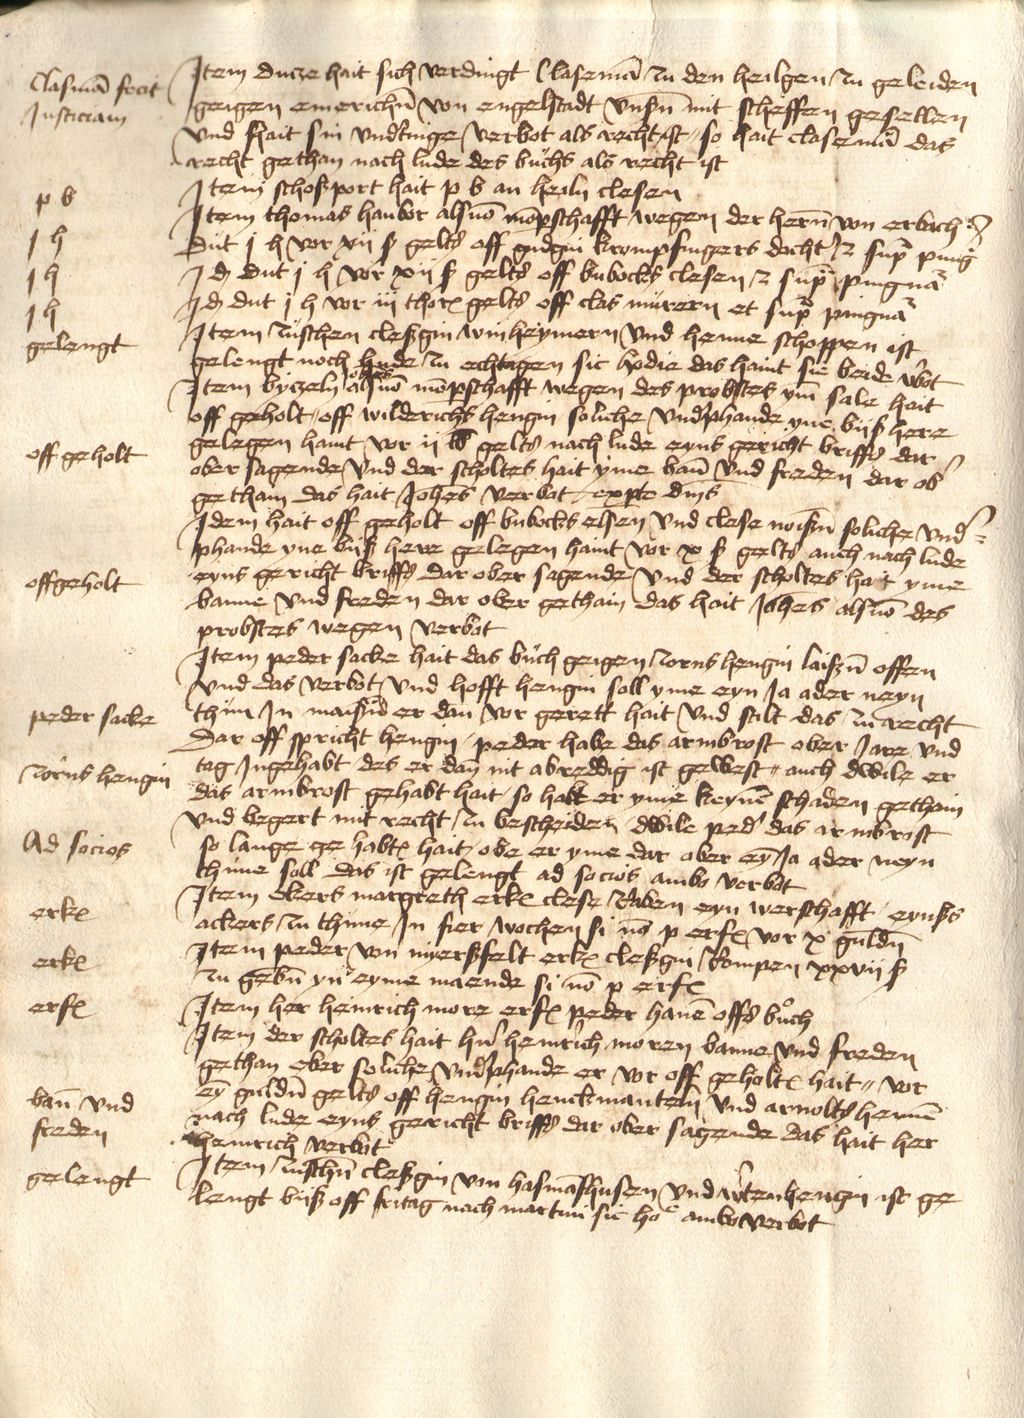 Clasmā fecit
Justiciam
Item ducze hait sich verdingt Clasemā zu den heilgen zu geleiden
geigen emerichē von engelstadt vnsrn mit scheffen gesellen
vnd hait sin vndtinge verbot als recht ist so hait clasemā das
recht gethan nach lude des buchs als recht ist
p b
Item schoßport hait p b an heiln clesen
Item thomas hanbor als mōpschafft wegen der hern von erbach
j h
dut j h vor xij ß gelts off gudgin krompfingers docht et sup ping
j h
Id dut j h vor xij ß gelts off bubocks clesen et sup pingnā
j h
Id dut j h vor iij gelts off clas murern et sup pingnā
gelengt
Item zuschen cleßgin winheymern vnd henne schoppen ist
gelengt noch hude zu echtagen sic hodie das haint sie beide vbot
Item byczeln als mōpschafft wegen des probstes ym sale hait
off geholt
off geholt off wilderichs hengin soliche vndphande yne biiß here
gelegen haint vor ij gelts nach lude eyns gericht briffs dar
ober sagende vnd der scholtes hait yme bāñ vnd freden dar ob
gethain das hait Johes verbot expte dms
Idem hait off geholt off bubocks elsen vnd clese soliche vnd
offgeholt
phande yne biiß here gelegen haint vor x ß gelts auch nach lude
eyns gericht briffs dar ober sagende vnd der scholtes hait yme
banne vnd freden dar ober gethain das hait Johēs als des
probstes wegen verbot
Item peder sacke hait das buch geigen zorns hengin laißñ offen
vnd das verbot vnd hofft hengin soll yme eyn Ja ader neyn
peder sacke
thun In maißn er dan vor gerett hait vnd stilt das zu recht
Dar off spricht hengin peder habe das armbrost ober Jare vnd
zorns hengin
tag Ingehabt des er dan nit abreddig ist gewest auch dwile er
das armbrost gehabt hait so habt er yme keynē schaden gethain
vnd begert mit recht zu bescheiden dwile ped das armbrost
Ad socios
so lange ge habt hait obe er yme dar ober eȳ Ja ader neyn
thune soll das ist gelengt ad socios ambo verbot
erk
Item ebers margreth erk clese raben eyn werschafft eynßs
ackers zu thune In fier wochen si nō p erf vor x guldn
erk
Item peder von mersßfelt erk cleßgin rompen xxvij ß
zu gebñ yn eyme maende si nō p erf
erf
Item her heinrich more erf peder hanē offs buch
Item der scholtes hait hn heinrich moren banne vnd freden
gethan ober soliche vndphande er vor off geholt hait vor
bāñ vnd
freden
eȳ guldn gelts off hengin henckmantein vnd arnolts hennē
nach lude eyns gericht briffs dar ober sagende das hait her
heinrich verbot
gelengt
Item zuschn cleßgin von hasmāßhusen vnd hengin ist ge
lengt biiß off fritag nach martini sic ho ambo verbot